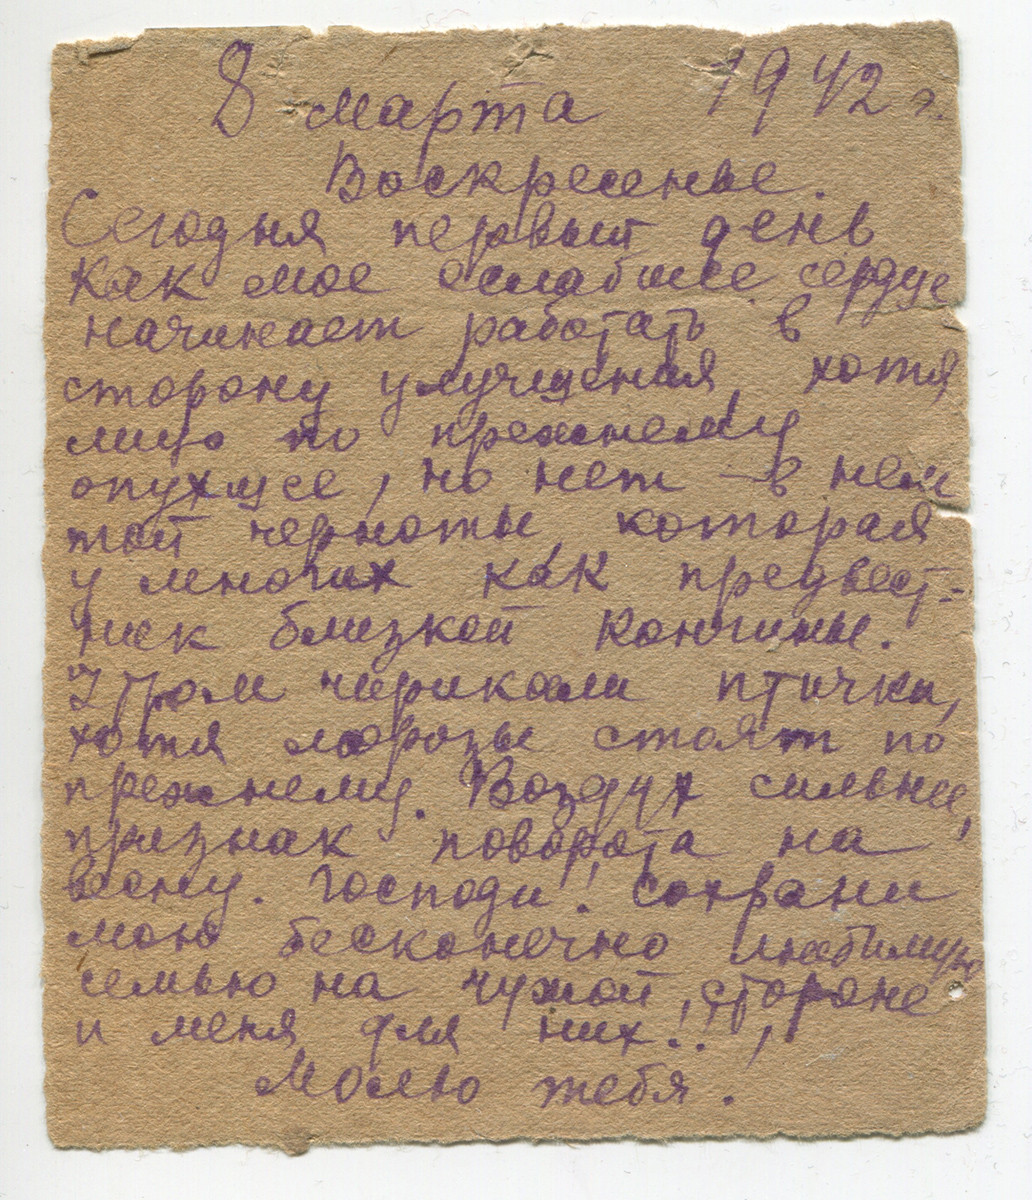 8 марта 1942 г.
Воскресенье.
Сегодня первый день
как мое ослабшее сердце
начинает работать в
сторону улучшения, хотя
лицо по прежнему
опухшее, но нет в нем
той черноты, которая
у многих как предвест-
ник близкой кончины.
Утром чирикали птички,
хотя морозы стоят по
прежнему. Воздух сильнее,
признак поворота на
весну. Господи! Сохрани
мою бесконечно любимую
семью на чужой стороне
и меня для них!!!
Молю тебя.